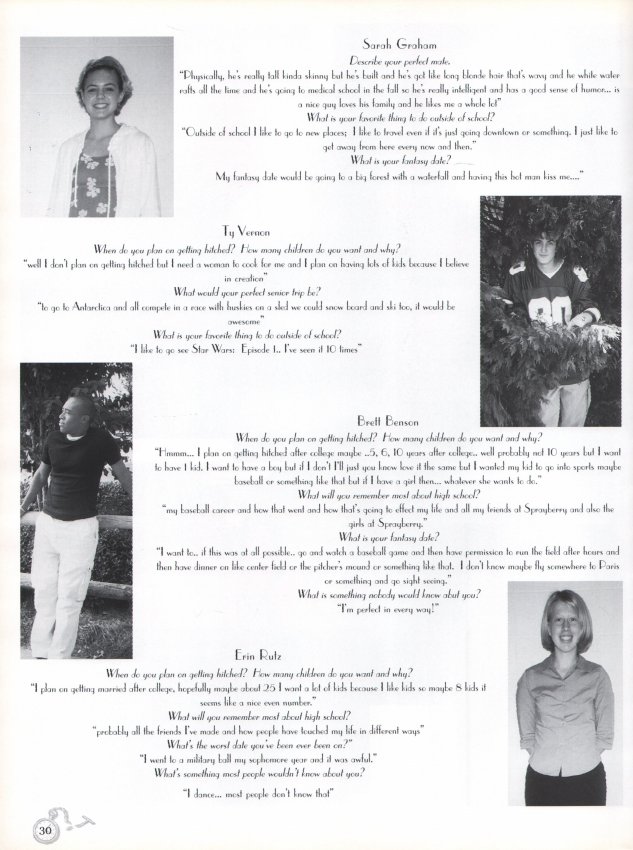 Sarah Graham
Describe your perfect mate.
"Physically, he's really tall kinda skinny but he's built and he's got like long blonde hair that's wavy and he white water
rafts all the time and he's going to medical school in the fall so he's really intelligent and has a good sense of humor... is
a nice guy loves his family and he likes me a whole lot"
What is your favorite thing to do outside of school?
"Outside of school I like to go to new places; I like to travel even if it's just going downtown or something. I just like to
get away from here every now and then."
What is your fantasy date?
My fantasy date would be going to a big forest with a waterfall and having this hot man kiss me...."
Ty Vernon
When do you plan on getting hitched? How many children do you want and why?
"well I don't plan on getting hitched but I need a woman to cook for me and I plan on having lots of kids because I believe
in creation"
What would your perfect senior trip be?
"to go to Antarctica and all compete in a race with huskies on a sled we could snow board and ski too, it would be
awesome"
What is your favorite thing to do outside of school?
"I like to go see Star Wars: Episode 1.. I've seen it 10 times"
Brett Benson
When do you plan on getting hitched? How many children do you want and why?
"Hmmm... I plan on getting hitched after college maybe ..5, 6, 10 years after college.. well probably not 10 years but I want
to have 1 kid. I want to have a boy but if I don't I'll just you know love it the same but I wanted my kid to go into sports maybe
baseball or something like that but if I have a girl then... whatever she wants to do."
What will you remember most about high school?
"my baseball career and how that went and how that's going to effect my life and all my friends at Sprayberry and also the
girls at Sprayberry."
What is your fantasy date?
"I want to.. if this was at all possible.. go and watch a baseball game and then have permission to run the field after hours and
then have dinner on like center field or the pitcher's mound or something like that. I don't know maybe fly somewhere to Paris
or something and go sight seeing."
What is something nobody would know abut you?
"I'm perfect in every way!"
Erin Rutz
When do you plan on getting hitched? How many children do you want and why?
"I plan on getting married after college, hopefully maybe about 25 I want a lot of kids because I like kids so maybe 8 kids it
seems like a nice even number."
What will you remember most about high school?
"probably all the friends I've made and how people have touched my life in different ways"
What's the worst date you've been ever been on?"
"I went to a military ball my sophomore year and it was awful."
What's something most people wouldn't know about you?
"I dance... most people don't know that"
30